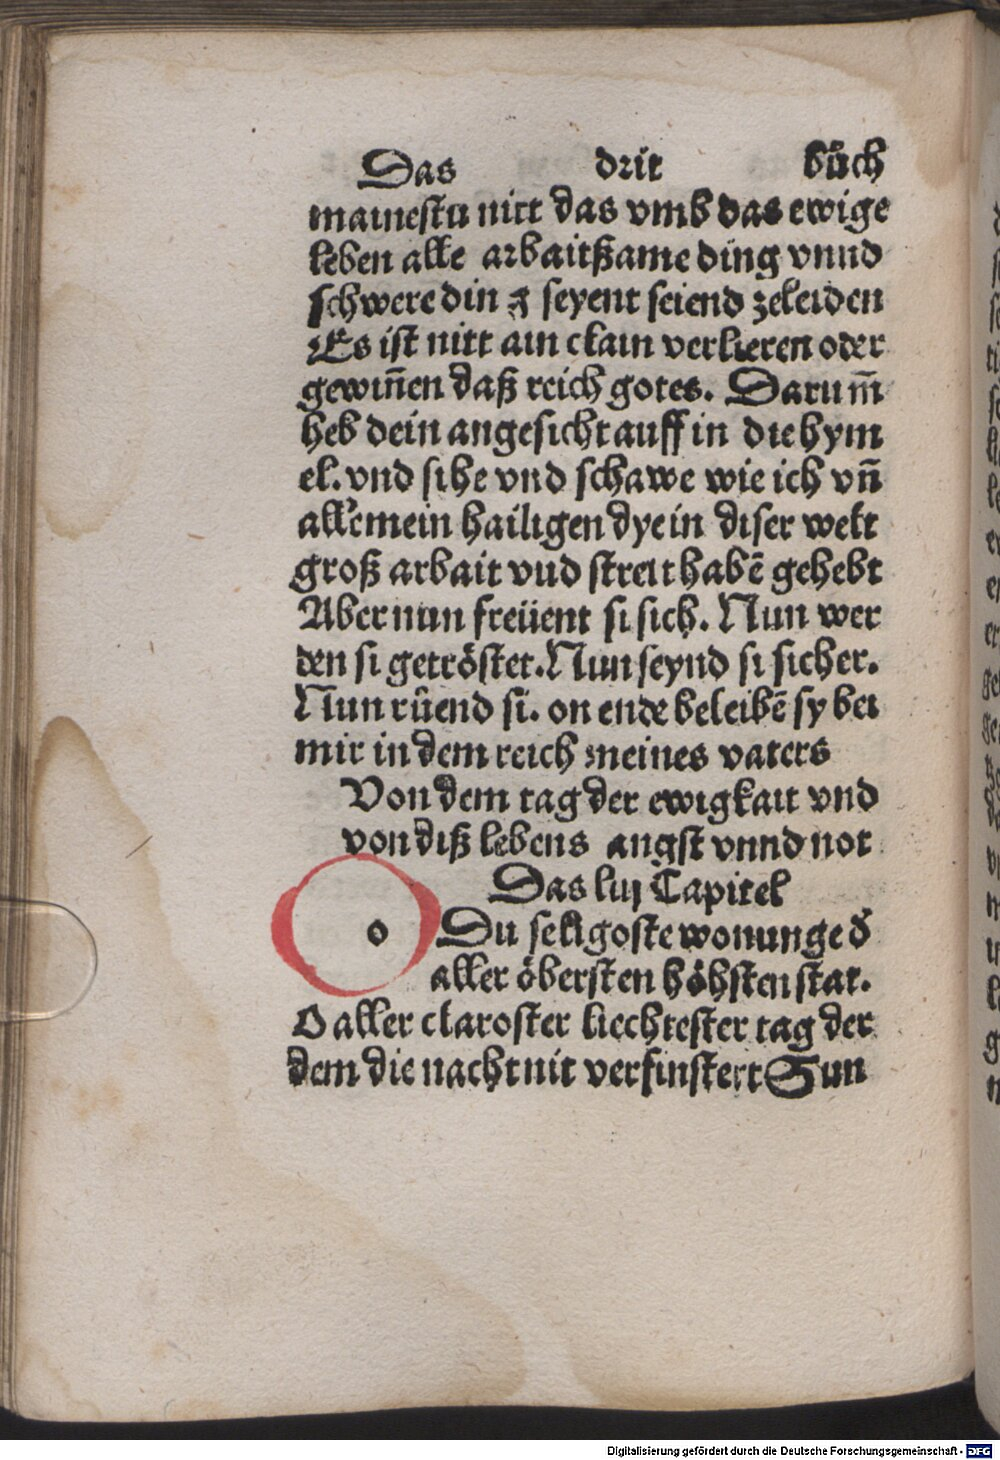 Das drit bůch
mainestu nitt das vmb das ewige
leben alle arbaitßame ding vnnd
schwere din g seyent seiend zeleiden
Es ist nitt ain clain verlieren oder
gewin̄en daß reich gotes. Darum̄
heb dein angesicht auff in die hym
el. vnd sihe vnd schawe wie ich vn̄
alle mein hailigen dye in diser welt
groß arbait vnd streit habē gehebt
Aber nun freüent si sich. Nun wer
den si getröstet. Nun seynd si sicher.
Nun růend si. on ende beleibē sy bei
mir in dem reich meines vaters
Von dem tag der ewigkait vnd
von diß lebens angst vnnd not
Das liij Capitel
o Du seligoste wonunge d̕
aller öbersten höhsten stat.
O aller claroster liechtester tag der
dem die nacht nit verfinstert Sun
Digitalisierung gefördert durch die Deutsche Forschungsgemeinschaft - DFG